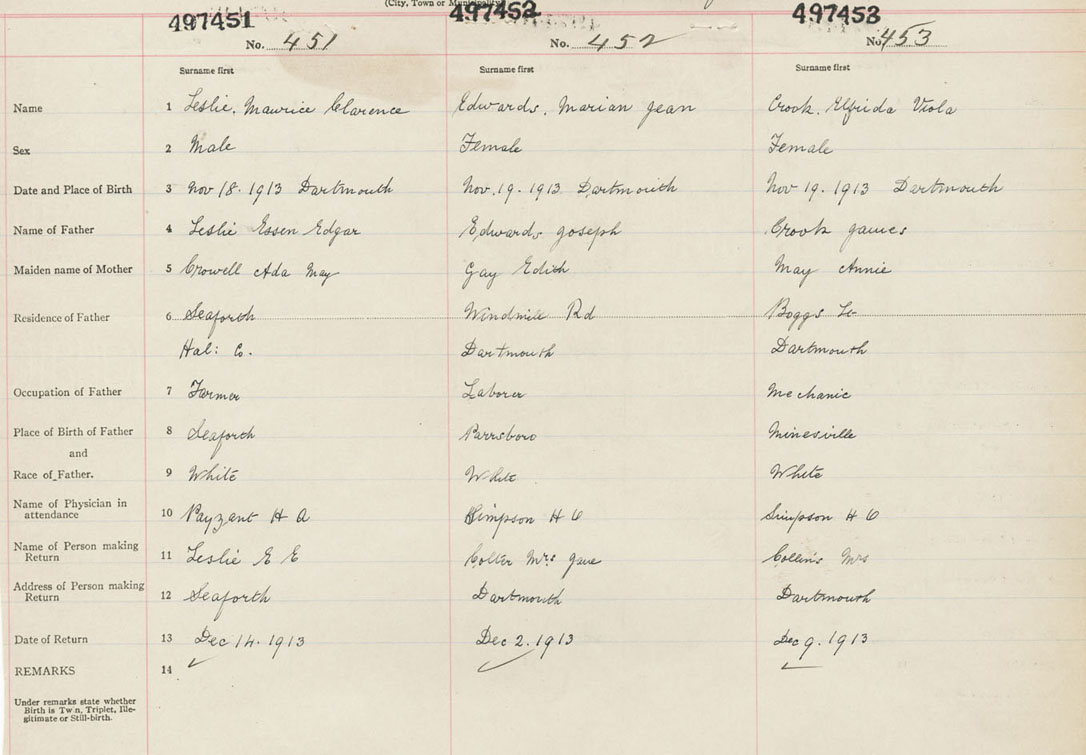 (City, Town or Municipality)
497451 497452 497453
No. 451 No. 452 No. 453
Surname first Surname first Surname first
Name 1 Leslie, Maurice Clarence Edwards, Marian Jean Crook, Elfrida Viola
Sex 2 Male Female Female
Date and Place of Birth 3 Nov 18. 1913 Dartmouth Nov. 19. 1913 Dartmouth Nov 19. 1913 Dartmouth
Name of Father 4 Leslie Essen Edgar Edwards Joseph Crook James
Maiden name of Mother 5 Crowell Ada May Gay Edith May Annie
Residence of Father 6 Seaforth Windmill Rd Boggs
Hal: Co. Dartmouth Dartmouth
Occupation of Father 7 Farmer Laborer Mechanic
Place of Birth of Father 8 Seaforth Parrsboro Minesville
and
Race of Father. 9 White White White
Name of Physician in
attendance 10 Payzant H A Simpson H Simpson H
Name of Person making
Return 11 Leslie E E Colter Mrs Jane Collins Mrs
Address of Person making
Return 12 Seaforth Dartmouth Dartmouth
Date of Return 13 Dec 14. 1913 Dec 2. 1913 Dec 9. 1913
REMARKS 14
Under remarks state whether
Birth is Twin, Triplet, Ille-
gitimate or Still-birth.